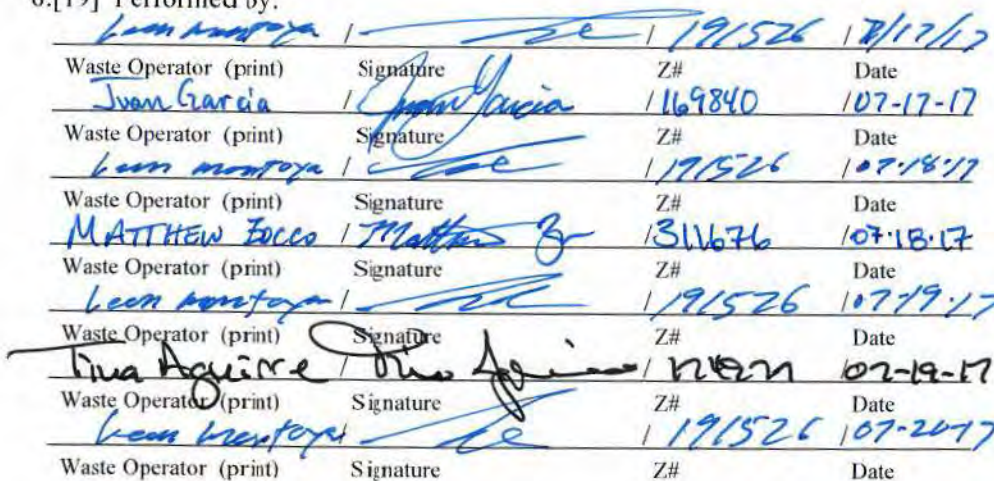 6.[19] Performed by:
Leon Montoya / / 191526 / /17/17
Waste Operator (print) Signature Z# Date
Juan Garcia / Juan Garcia / 169840 / 07-17-17
Waste Operator (print) Signature Z# Date
Leon Montoya / / 191526 / 07.18.17
Waste Operator (print) Signature Z# Date
MATTHEW ZOCCO / Matthew / 311676 / 07.18.17
Waste Operator (print) Signature Z# Date
Leon Montoya / / 191526 / 07.19.17
Waste Operator (print) Signature Z# Date
Tina Aguirre / Tina / / 07-19-17
Waste Operator (print) Signature Z# Date
Leon Montoya / / 191526 / 07-20-17
Waste Operator (print) Signature Z# Date